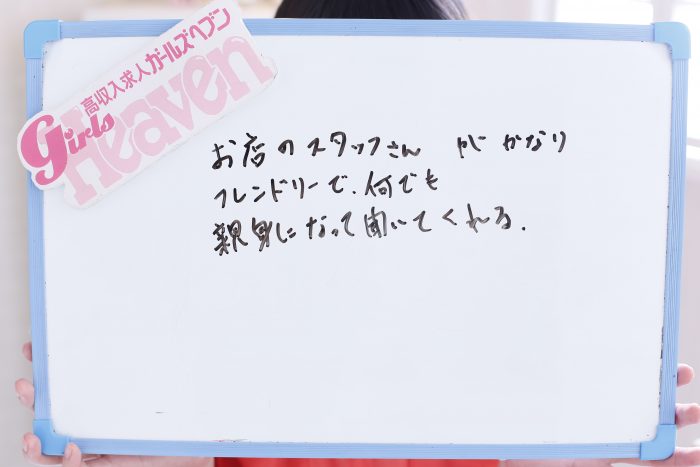 高収入求人ガールズヘブン
Girls
Heaven
お店のスタッフさん がかなり
フレンドリーで、何でも
親身になって聞いてくれる.